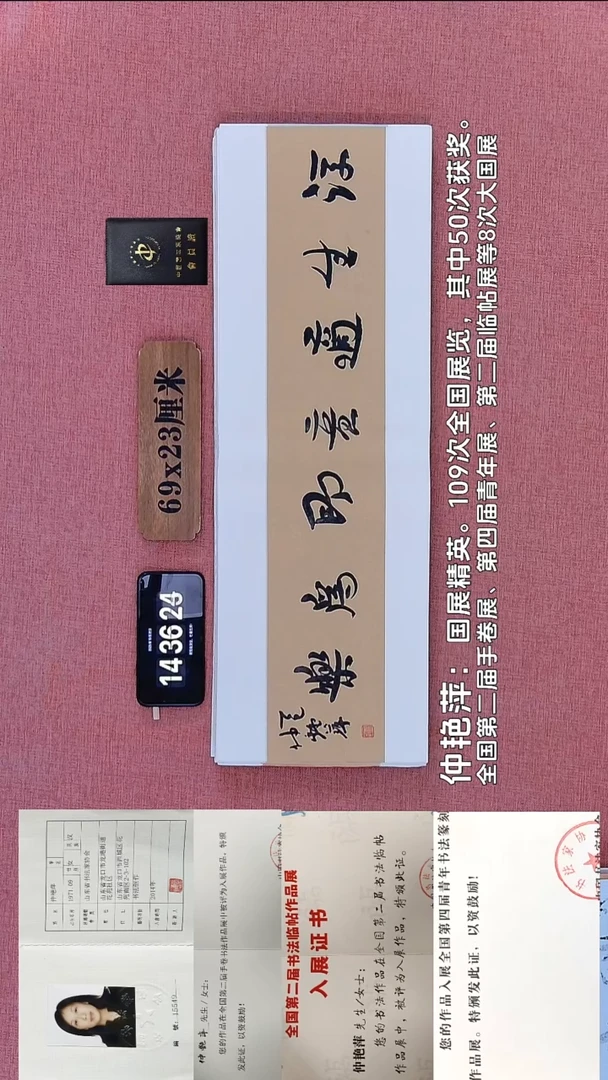 浮生適意即爲樂
仲艳萍
会员证
69x23厘米
14 36 24
仲艳萍：国展精英。109次全国展览，其中50次获奖。
全国第二届手卷展、第四届青年展、第二届临帖展等8次大国展
仲艳萍
1971.09
山东省书法家协会
编号：15549
仲艳萍 先生/女士：
您的作品在全国第二届手卷书法作品展中被评为入展作品，特颁
发此证，以资鼓励！
全国第二届书法临帖作品展
入展证书
仲艳萍先生/女士：
您的书法作品在全国第二届书法临帖
作品展中，被评为入展作品，特颁此证。
您的作品入展全国第四届青年书法篆刻
作品展。特颁发此证，以资鼓励！